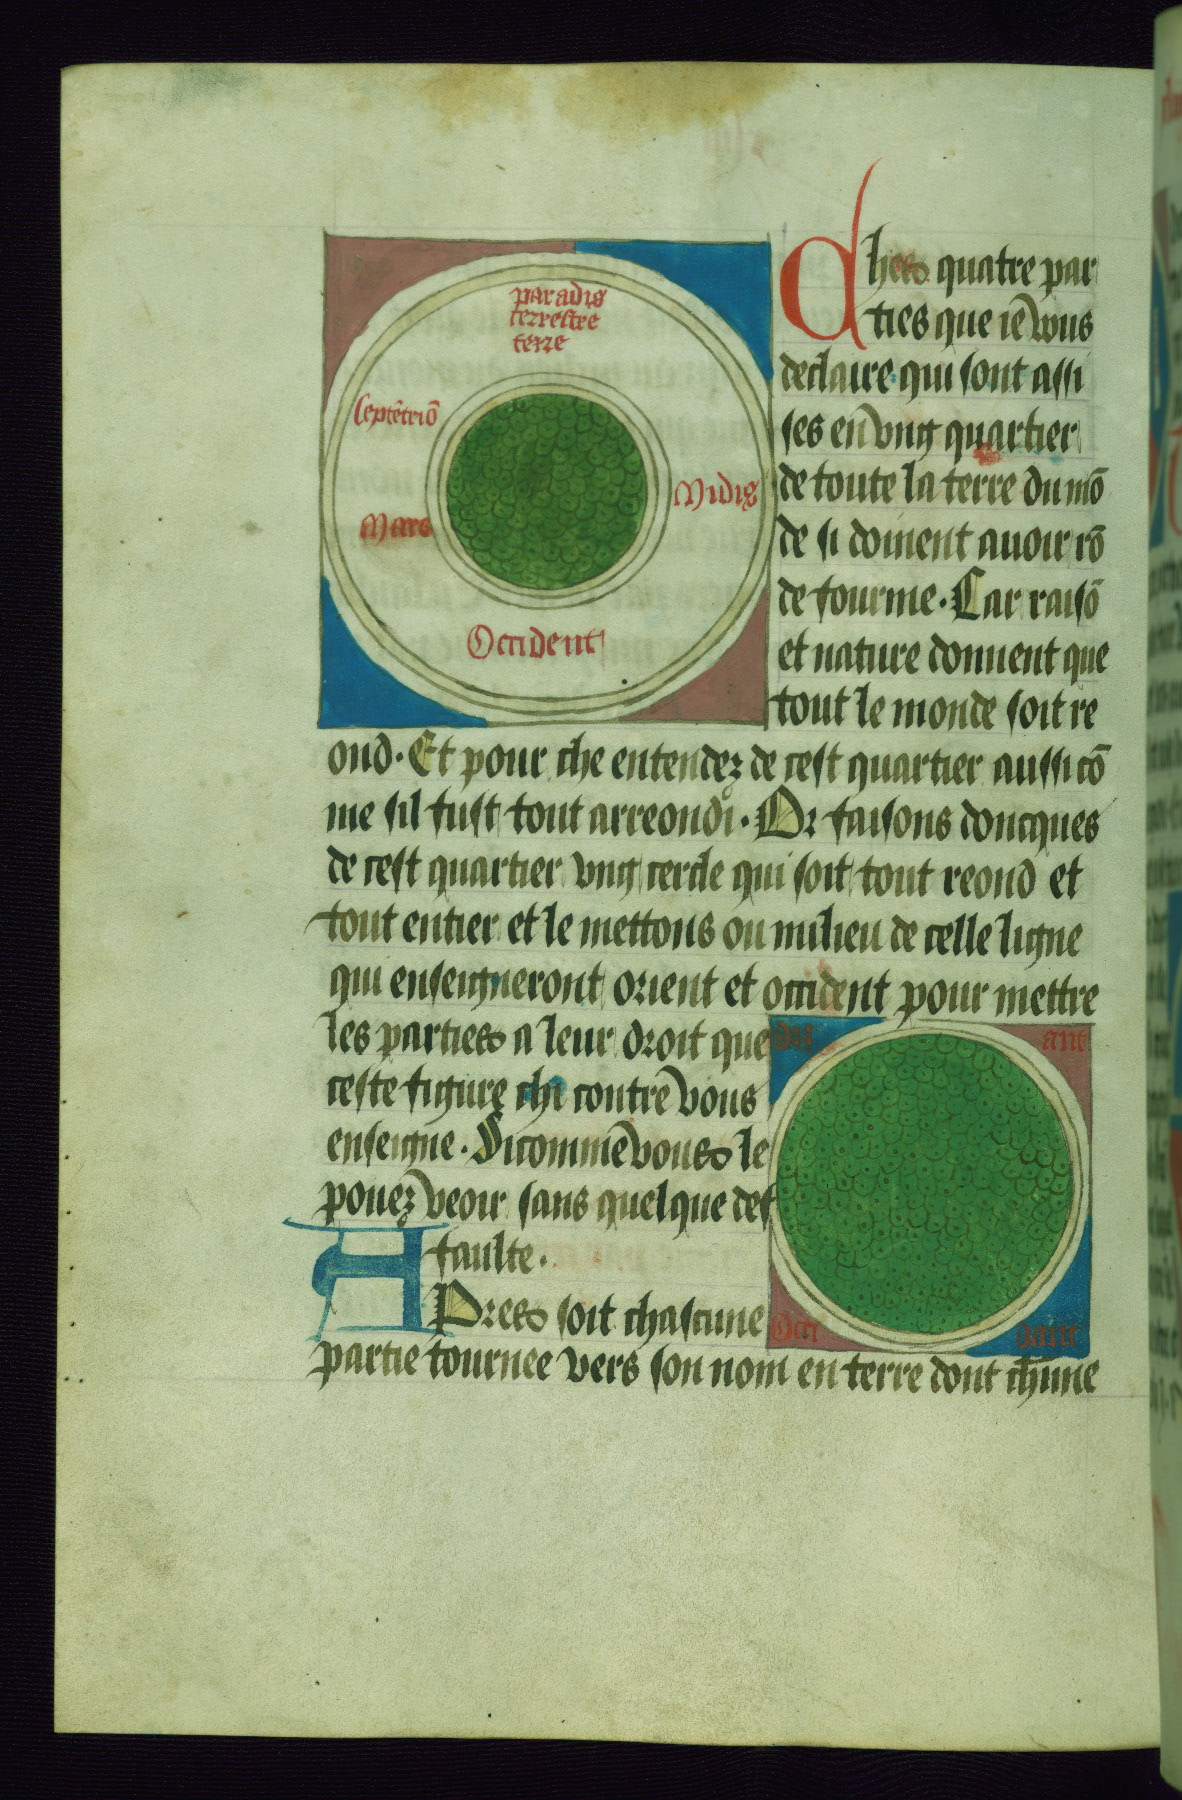 paradis
terrestre
terre
Septẽtriõ
Mars
Midis
Occident
Ches quatre par
ties que ie vous
declaire qui sont assi
ses en vng quartier
de toute la terre du mõ
de si doiuent auoir rõ
de fourme. Car raisõ
et nature donnent que
tout le monde soit re
ond. Et pour che entendez de cest quartier aussi cõ
me sil fust tout arreondi. Or faisons doncques
de cest quartier vng cercle qui soit tout reond et
tout entier et le mettons ou milieu de celle ligne
qui enseigneront orient et occident pour mettre
les parties a leur droit que
ceste figure chi contre vous
enseigne. Si comme vous le
pouez veoir sans quelque def
faulte.
APres soit chascune
partie tournee vers son nom en terre dont chũne
ant
Occi
dant